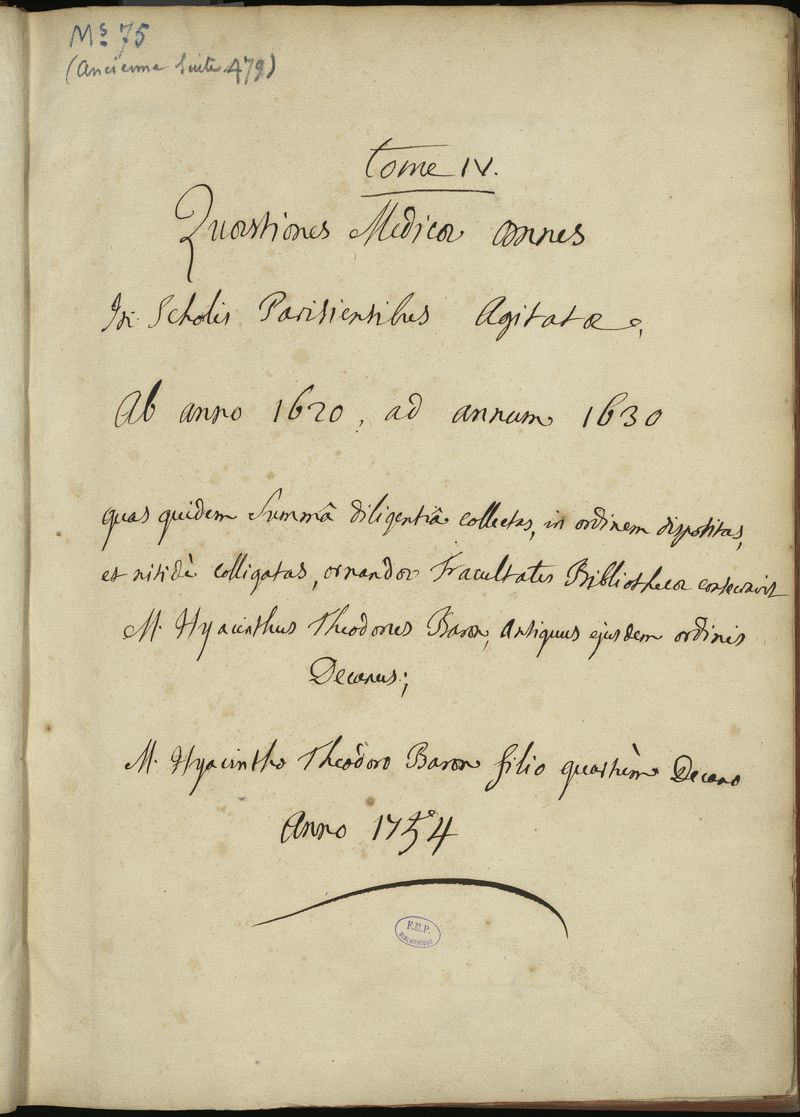 Ms 75
(Ancienne Suite 479)
Tome IV.
Quæstiones Medicæ omnes
In Scholis Parisiensibus Agitatæ,
Ab anno 1620, ad annum 1630
quas quidem Summâ diligentiâ collectas, in ordinem dispositas,
et nitidè colligatas, ornandæ Facultatis Bibliothecæ consecravit
M. Hyacinthus Theodorus Baron, Antiquus ejusdem ordinis
Decanus;
M. Hyacintho Theodoro Baron filio quartùm Decano
Anno 1754
F.M.P.
BIBLIOTHÈQUE